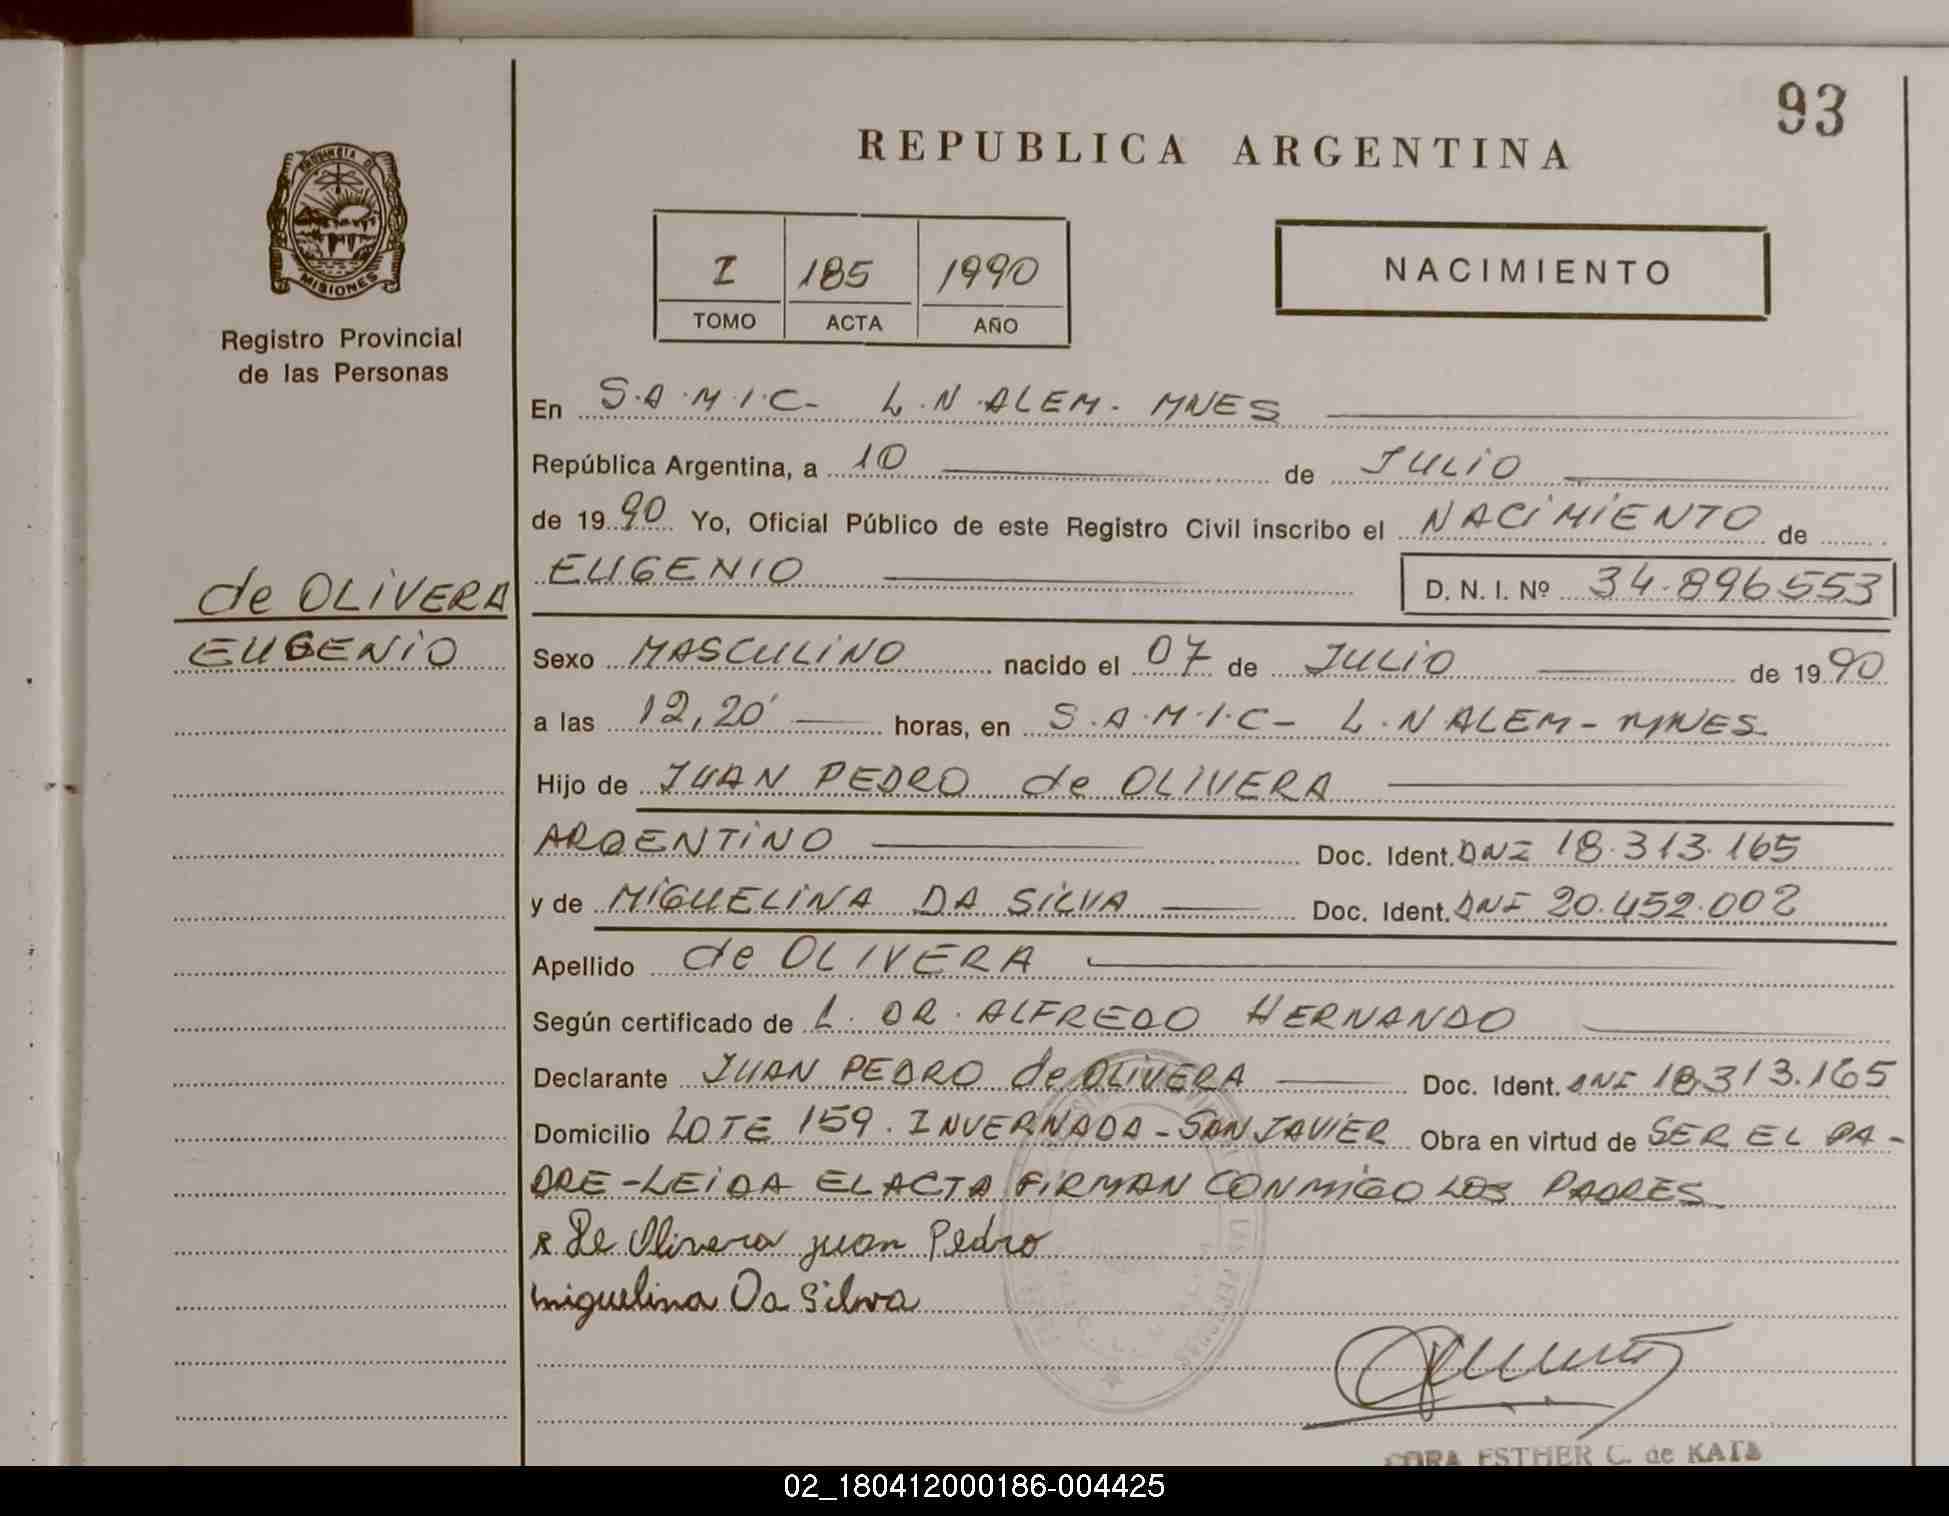 93
REPUBLICA ARGENTINA
PROVINCIA DE
MISIONES
Registro Provincial
de las Personas
I 185 1990
TOMO ACTA AÑO
NACIMIENTO
En S.A.M.I.C- L.N.ALEM. MNES
República Argentina, a 10 de JULIO
de 1990 Yo, Oficial Público de este Registro Civil inscribo el NACIMIENTO de
EUGENIO D. N. I. Nº 34.896.553
de OLIVERA
EUGENIO
Sexo MASCULINO nacido el 07 de JULIO de 1990
a las 12,20' horas, en S.A.M.I.C- L.N ALEM- MNES
Hijo de JUAN PEDRO de OLIVERA
ARGENTINO Doc. Ident. DNI 18.313.165
y de MIGUELINA DA SILVA Doc. Ident. DNI 20.452.002
Apellido de OLIVERA
Según certificado de L. DR. ALFREDO HERNANDO
Declarante JUAN PEDRO de OLIVERA Doc. Ident. DNI 18.313.165
Domicilio LOTE 159. INVERNADA-SAN JAVIER Obra en virtud de SER EL PA-
DRE-LEIDA EL ACTA FIRMAN CONMIGO LOS PADRES
x De Olivera juan Pedro
miguelina Da Silva
CORA ESTHER C. de KATA
02_180412000186-004425